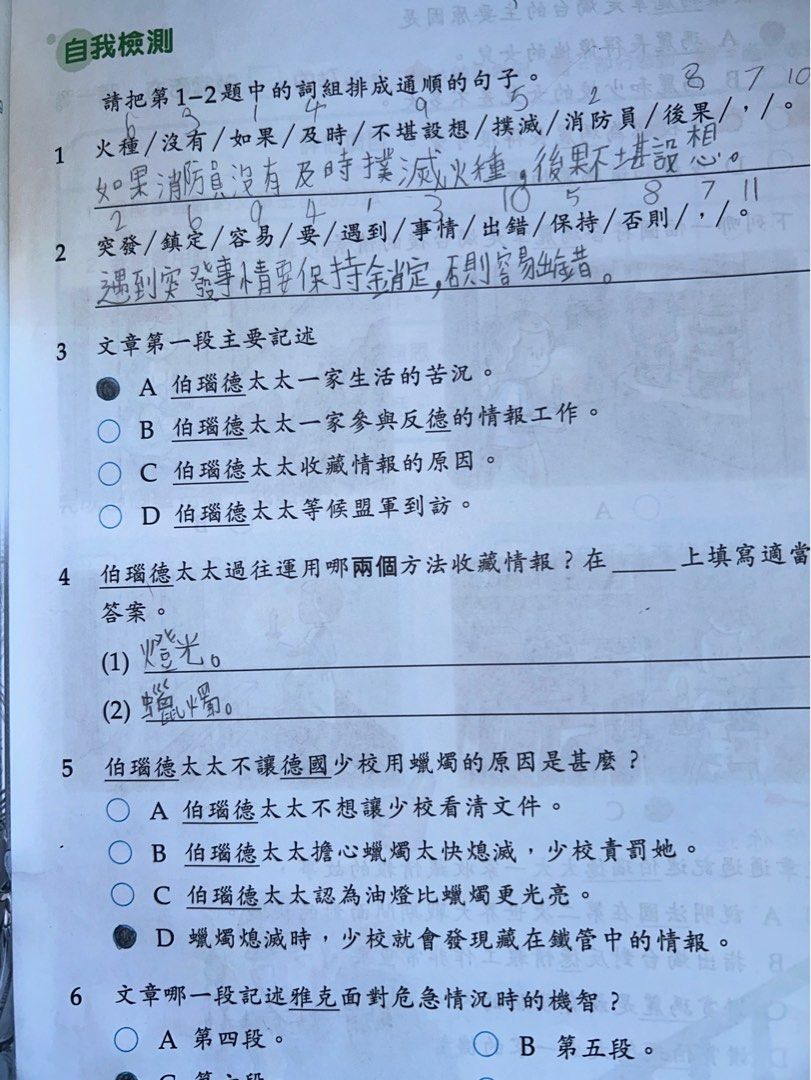 自我檢測
請把第1-2題中的詞組排成通順的句子。
6 3 1 4 9 5 2 8 7 10
1 火種/沒有/如果/及時/不堪設想/撲滅/消防員/後果/,/。
如果消防員沒有及時撲滅火種,後果不堪設想。
2 6 9 4 1 3 10 5 8 7 11
2 突發/鎮定/容易/要/遇到/事情/出錯/保持/否則/,/。
遇到突發事情要保持鎮定,否則容易出錯。
3 文章第一段主要記述
A 伯瑙德太太一家生活的苦況。
B 伯瑙德太太一家參與反德的情報工作。
C 伯瑙德太太收藏情報的原因。
D 伯瑙德太太等候盟軍到訪。
4 伯瑙德太太過往運用哪兩個方法收藏情報?在_____上填寫適當
答案。
(1) 燈光。
(2) 蠟燭。
5 伯瑙德太太不讓德國少校用蠟燭的原因是甚麼?
A 伯瑙德太太不想讓少校看清文件。
B 伯瑙德太太擔心蠟燭太快熄滅,少校責罰她。
C 伯瑙德太太認為油燈比蠟燭更光亮。
D 蠟燭熄滅時,少校就會發現藏在鐵管中的情報。
6 文章哪一段記述雅克面對危急情況時的機智?
A 第四段。 B 第五段。
C 第六段